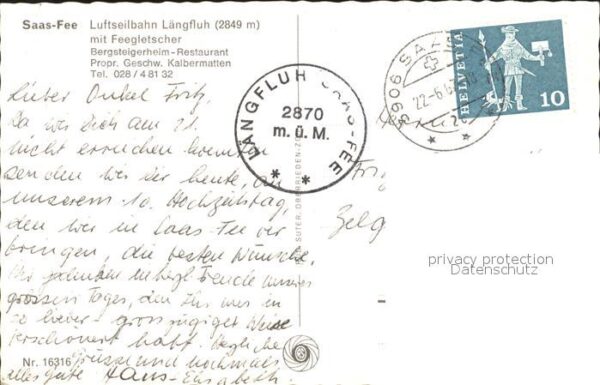 Saas-Fee Luftseilbahn Längfluh (2849 m)
mit Feegletscher
Bergsteigerheim-Restaurant
Propr. Geschw. Kalbermatten
Tel. 028 / 4 81 32
Lieber Onkel Fritz,
Da wir Dich am 21.
nicht erreichen konnten
senden wir Dir heute, an
unserem 10. Hochzeitstag,
den wir in Saas-Fee ver
bringen, die besten Wünsche.
Wir gedenken in herzl. Freude unseres
grossen Tages, den Ihr uns in
so lieber - grosszügiger Weise
verschönert habt. Herzliche
Grüsse und nochmals
alles gute Hans-Elsabeth
Nr. 16316
LÄNGFLUH SAAS-FEE
2870
m. ü. M.
3906 SAAS-FEE
22-6-6
HELVETIA
10
Zelg
privacy protection
Datenschutz